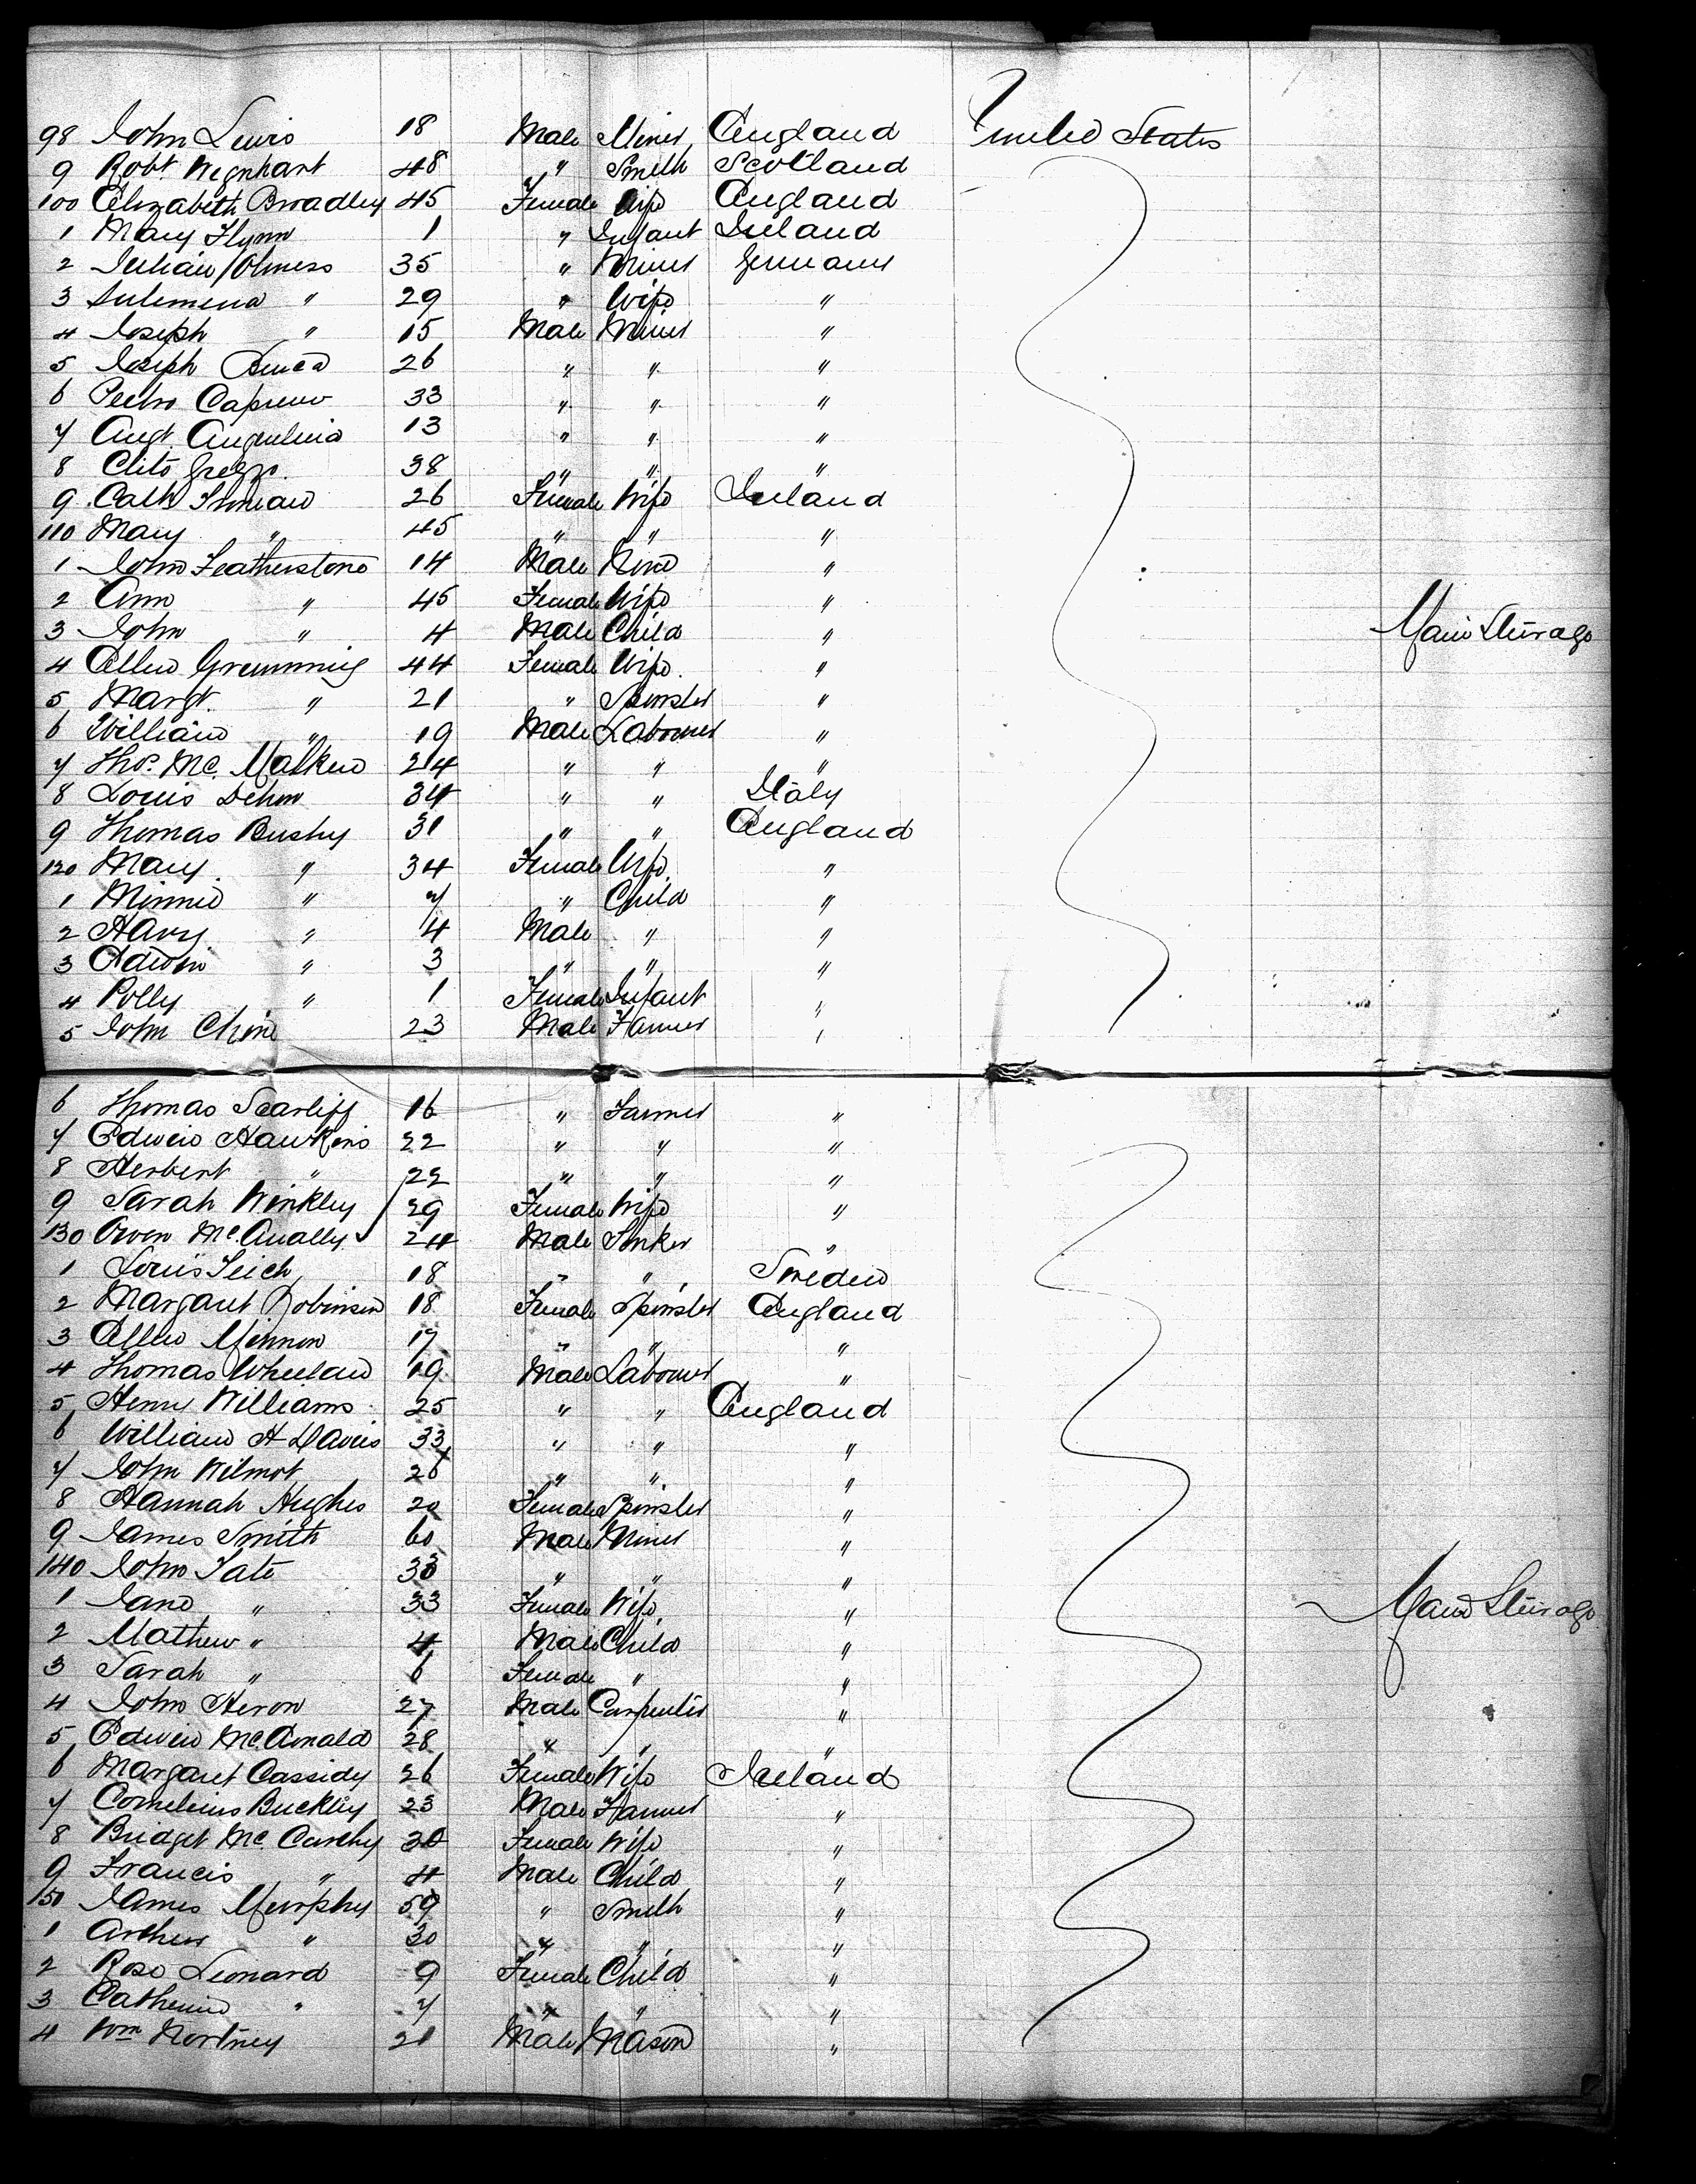 98 John Lewis 18 Male Miner England United States
9 Robt. Wegnhart 48 " Smith Scotland
100 Elizabeth Bradley 45 Female Wife England
1 Mary Flynn 1 " Infant Ireland
2 Julian 35 " Miner Germany
3 " 29 " Wife "
4 Joseph " 15 Male Miner "
5 Joseph 26 " " "
6 Pedro 33 " " "
7 Augt. 13 " " "
8 Clito 38 " " "
9 Cath 26 Female Wife Ireland
110 Mary " 45 " " "
1 John Featherstone 14 Male None "
2 Ann " 45 Female Wife "
3 John " 4 Male Child " Main Steerage
4 Ellen Gremming 44 Female Wife "
5 Margt. " 21 " Spinster "
6 William " 19 Male Labourer "
7 Thos. Mc. Malken 24 " " "
8 Louis Dehm 34 " " Italy
9 Thomas Bushy 31 " " England
120 Mary " 34 Female Wife "
1 Minnie " 7 " Child "
2 Harry " 4 Male " "
3 Edwin " 3 " " "
4 Polly " 1 Female Infant "
5 John Chine 23 Male Farmer "
6 Thomas Scarliff 16 " Farmer "
7 Edwin Hawkins 22 " " "
8 Herbert " 22 " " "
9 Sarah Winkley 29 Female Wife "
130 Owen McAnally 24 Male Sinker "
1 Louis Teich 18 " " Sweden
2 Margaret Robinson 18 Female Spinster England
3 Ellen Minnon 17 " " "
4 Thomas Wheelan 19 Male Labourer "
5 Henry Williams 25 " " England
6 William H Davis 33 " " "
7 John Wilmot 26 " " "
8 Hannah Hughes 20 Female Spinster "
9 James Smith 60 Male Miner "
140 John Tate 33 " " "
1 Jane " 33 Female Wife " Main Steerage
2 Mathew " 4 Male Child "
3 Sarah " 6 Female " "
4 John Heron 27 Male Carpenter "
5 Edwin McDonald 28 " " "
6 Margaret Cassidy 26 Female Wife Ireland
7 Cornelius Buckley 23 Male Farmer "
8 Bridget Mc. Carthy 30 Female Wife "
9 Francis " 4 Male Child "
150 James Murphy 59 " Smith "
1 Arthur " 30 " " "
2 Rose Leonard 9 Female Child "
3 Catherine " 7 " " "
4 Wm Nortney 21 Male Mason "